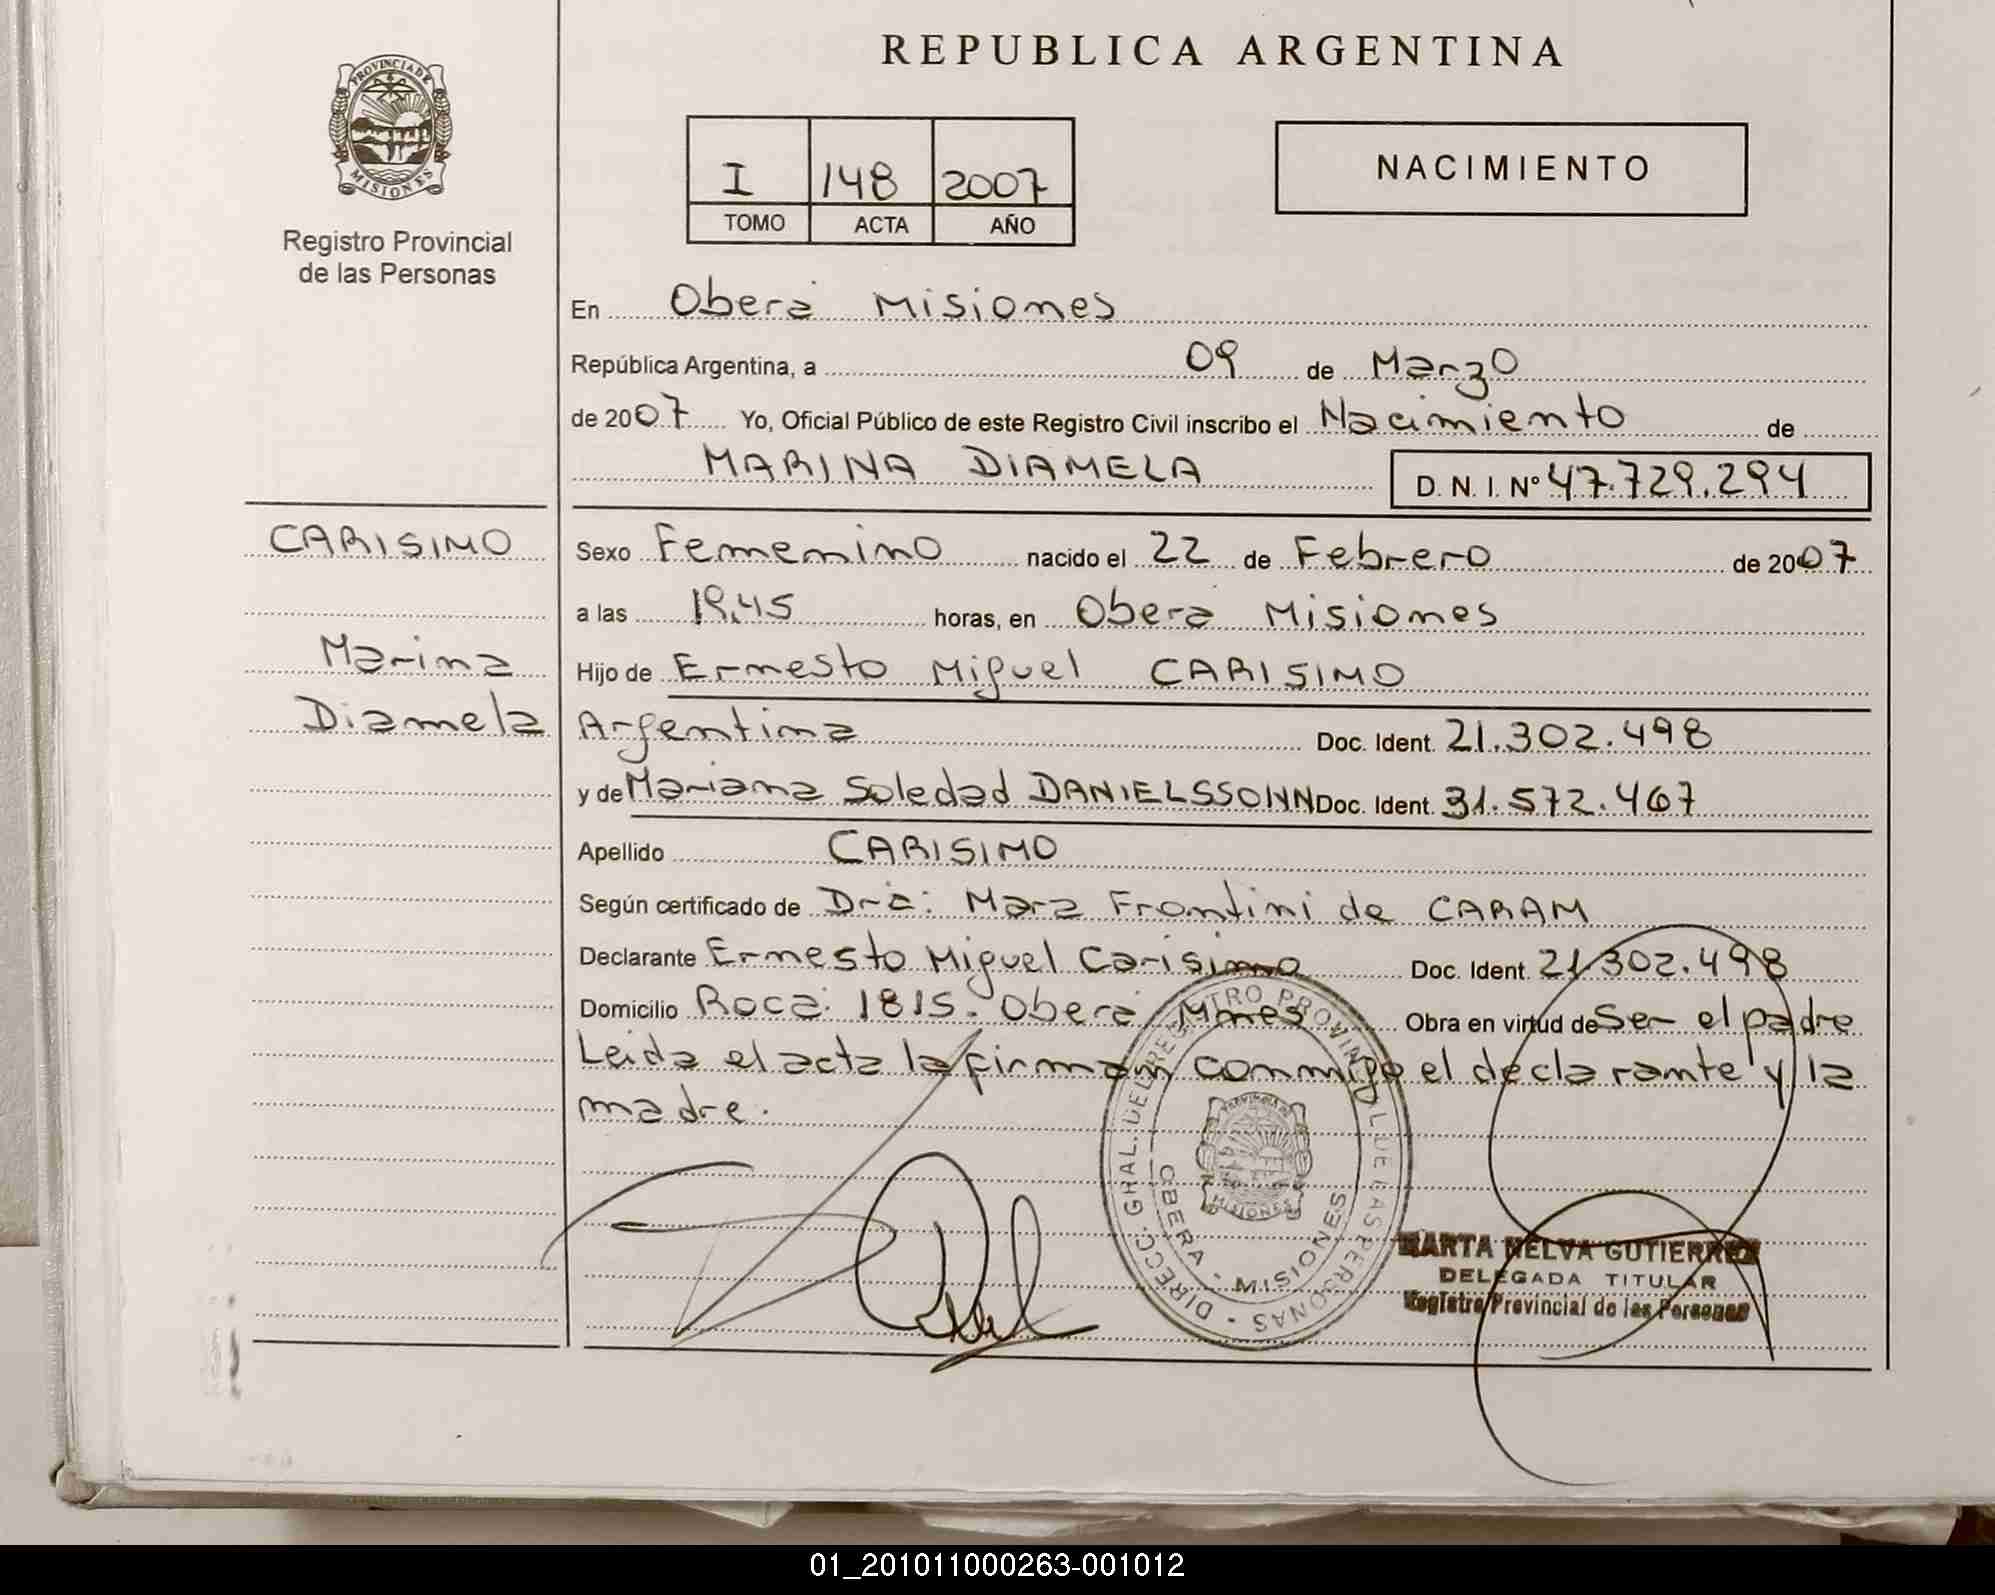 REPUBLICA ARGENTINA
PROVINCIA DE
MISIONES
Registro Provincial
de las Personas
I 148 2007
TOMO ACTA AÑO
NACIMIENTO
En Oberá Misiones
República Argentina, a 09 de Marzo
de 2007 Yo, Oficial Público de este Registro Civil inscribo el Nacimiento de
MARINA DIAMELA D. N. I. Nº 47.729.294
CARISIMO
Marina
Diamela
Sexo Femenino nacido el 22 de Febrero de 2007
a las 19,45 horas, en Oberá Misiones
Hijo de Ernesto Miguel CARISIMO
Argentina Doc. Ident. 21.302.498
y de Mariana Soledad DANIELSSONN Doc. Ident. 31.572.467
Apellido CARISIMO
Según certificado de Dra: Mara Frontini de CARAM
Declarante Ernesto Miguel Carisimo Doc. Ident. 21.302.498
Domicilio Roca: 1815. Oberá Mnes Obra en virtud de Ser el padre
Leida el acta la firman conmigo el declarante y la
madre.
DIRECC. GRAL. DEL REGISTRO PROVINCIAL DE LAS PERSONAS -
OBERA - MISIONES
MISIONES
MARTA NELVA GUTIERREZ
DELEGADA TITULAR
Registro Provincial de las Personas
01_201011000263-001012